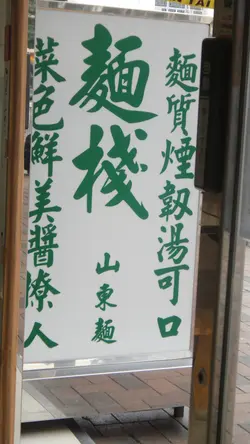 麵質煙韌湯可口
麵棧
山東麵
菜色鮮美醬撩人